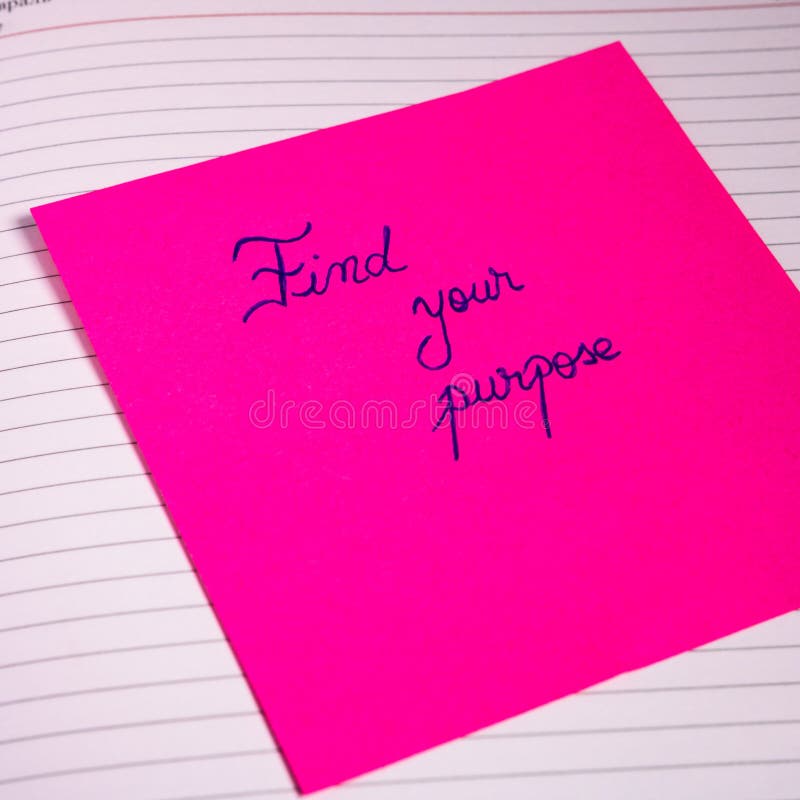 Find
your
purpose
dreamstime